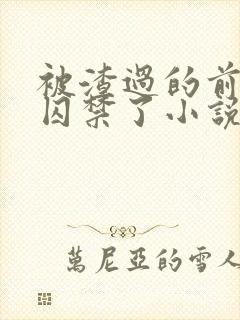 被渣過的前
囚禁了小說
萬尼亞的雪人